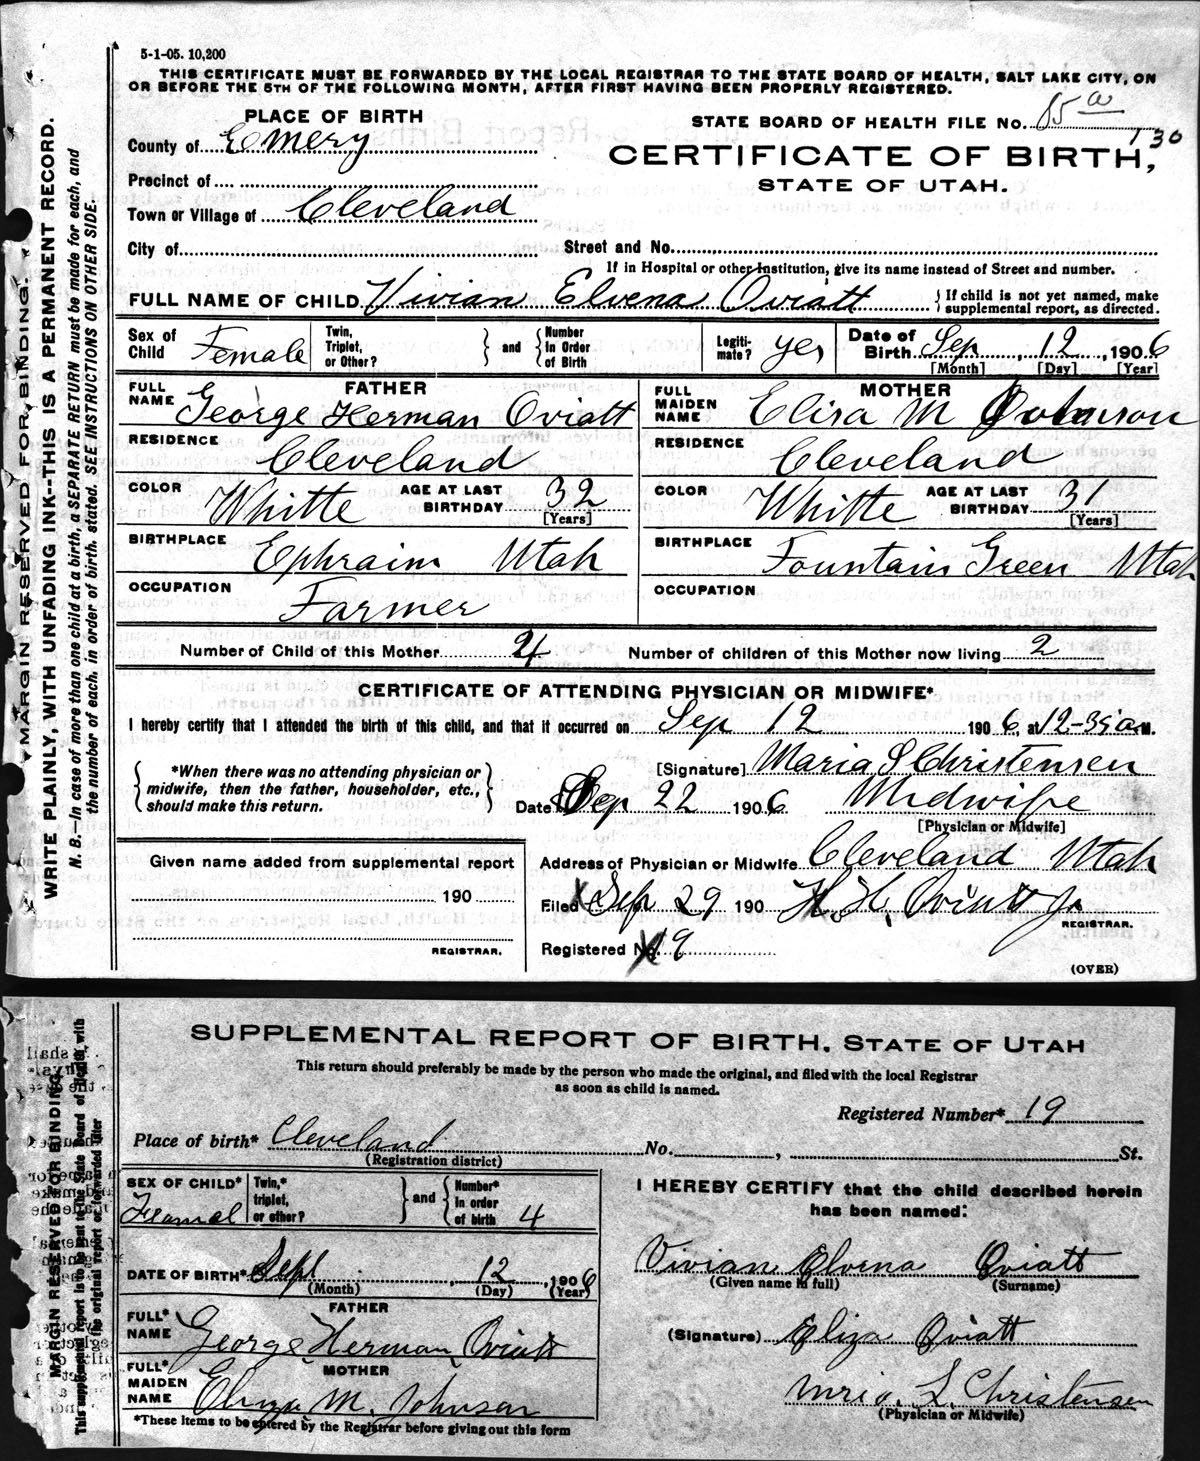 5-1-05. 10,200
THIS CERTIFICATE MUST BE FORWARDED BY THE LOCAL REGISTRAR TO THE STATE BOARD OF HEALTH, SALT LAKE CITY, ON
OR BEFORE THE 5TH OF THE FOLLOWING MONTH, AFTER FIRST HAVING BEEN PROPERLY REGISTERED.
PLACE OF BIRTH
STATE BOARD OF HEALTH FILE No. 85 a
130
County of Emery
CERTIFICATE OF BIRTH,
STATE OF UTAH.
Precinct of
Town or Village of Cleveland
City of Street and No.
If in Hospital or other Institution, give its name instead of Street and number.
FULL NAME OF CHILD Vivian Elvena Oviatt { If child is not yet named, make supplemental report, as directed.
Sex of Child Female Twin, Triplet, or Other? } and { Number In Order of Birth Legiti-mate? yes Date of Birth Sep, 12, 1906
[Month] [Day] [Year]
FATHER
FULL NAME George Herman Oviatt
RESIDENCE Cleveland
COLOR Whitte AGE AT LAST BIRTHDAY 32 [Years]
BIRTHPLACE Ephraim Utah
OCCUPATION Farmer
MOTHER
FULL MAIDEN NAME Elisa M Johnson
RESIDENCE Cleveland
COLOR Whitte AGE AT LAST BIRTHDAY 31 [Years]
BIRTHPLACE Fountain Green Utah
OCCUPATION
Number of Child of this Mother 4 Number of children of this Mother now living 2
CERTIFICATE OF ATTENDING PHYSICIAN OR MIDWIFE*
I hereby certify that I attended the birth of this child, and that it occurred on Sep 12 1906, at 12-35 a M.
{ *When there was no attending physician or midwife, then the father, householder, etc., should make this return. }
[Signature] Maria S Christensen
Date Sep 22 1906 Midwife
[Physician or Midwife]
Given name added from supplemental report
190
REGISTRAR.
Address of Physician or Midwife Cleveland Utah
Filed Sep 29 190 H. H. Oviatt Jr
REGISTRAR.
Registered No. 19
(OVER)
MARGIN RESERVED FOR BINDING.
WRITE PLAINLY, WITH UNFADING INK--THIS IS A PERMANENT RECORD.
N. B.—In case of more than one child at a birth, a SEPARATE RETURN must be made for each, and
the number of each, in order of birth, stated. SEE INSTRUCTIONS ON OTHER SIDE.
SUPPLEMENTAL REPORT OF BIRTH, STATE OF UTAH
This return should preferably be made by the person who made the original, and filed with the local Registrar
as soon as child is named.
Registered Number* 19
Place of birth* Cleveland No. , St.
(Registration district)
SEX OF CHILD* Feamel Twin,* triplet, or other? } and { Number* in order of birth 4
DATE OF BIRTH* Sept, 12, 1906
(Month) (Day) (Year)
FATHER
FULL* NAME George Herman Oviatt
MOTHER
FULL* MAIDEN NAME Eliza M. Johnson
*These items to be entered by the Registrar before giving out this form
I HEREBY CERTIFY that the child described herein
has been named:
Vivian Elvena Oviatt
(Given name in full) (Surname)
(Signature) Eliza Oviatt
Mria S. Christensen
(Physician or Midwife)
MARGIN RESERVED FOR BINDING.
This supplemental report is to be sent to the State Board of Health, with
the original report or forwarded later